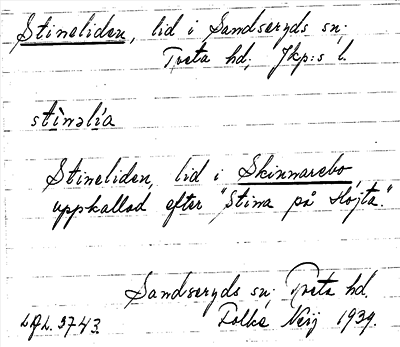 Stineliden, lid i Sandseryds sn;
Tveta hd; Jkp:s l.
stìnəlía
Stineliden, lid i Skinnarebo
uppkallad efter "Stina på Höjta."
Sandseryds sn; Tveta hd.
LAL. 3743. Folke Neij 1939.